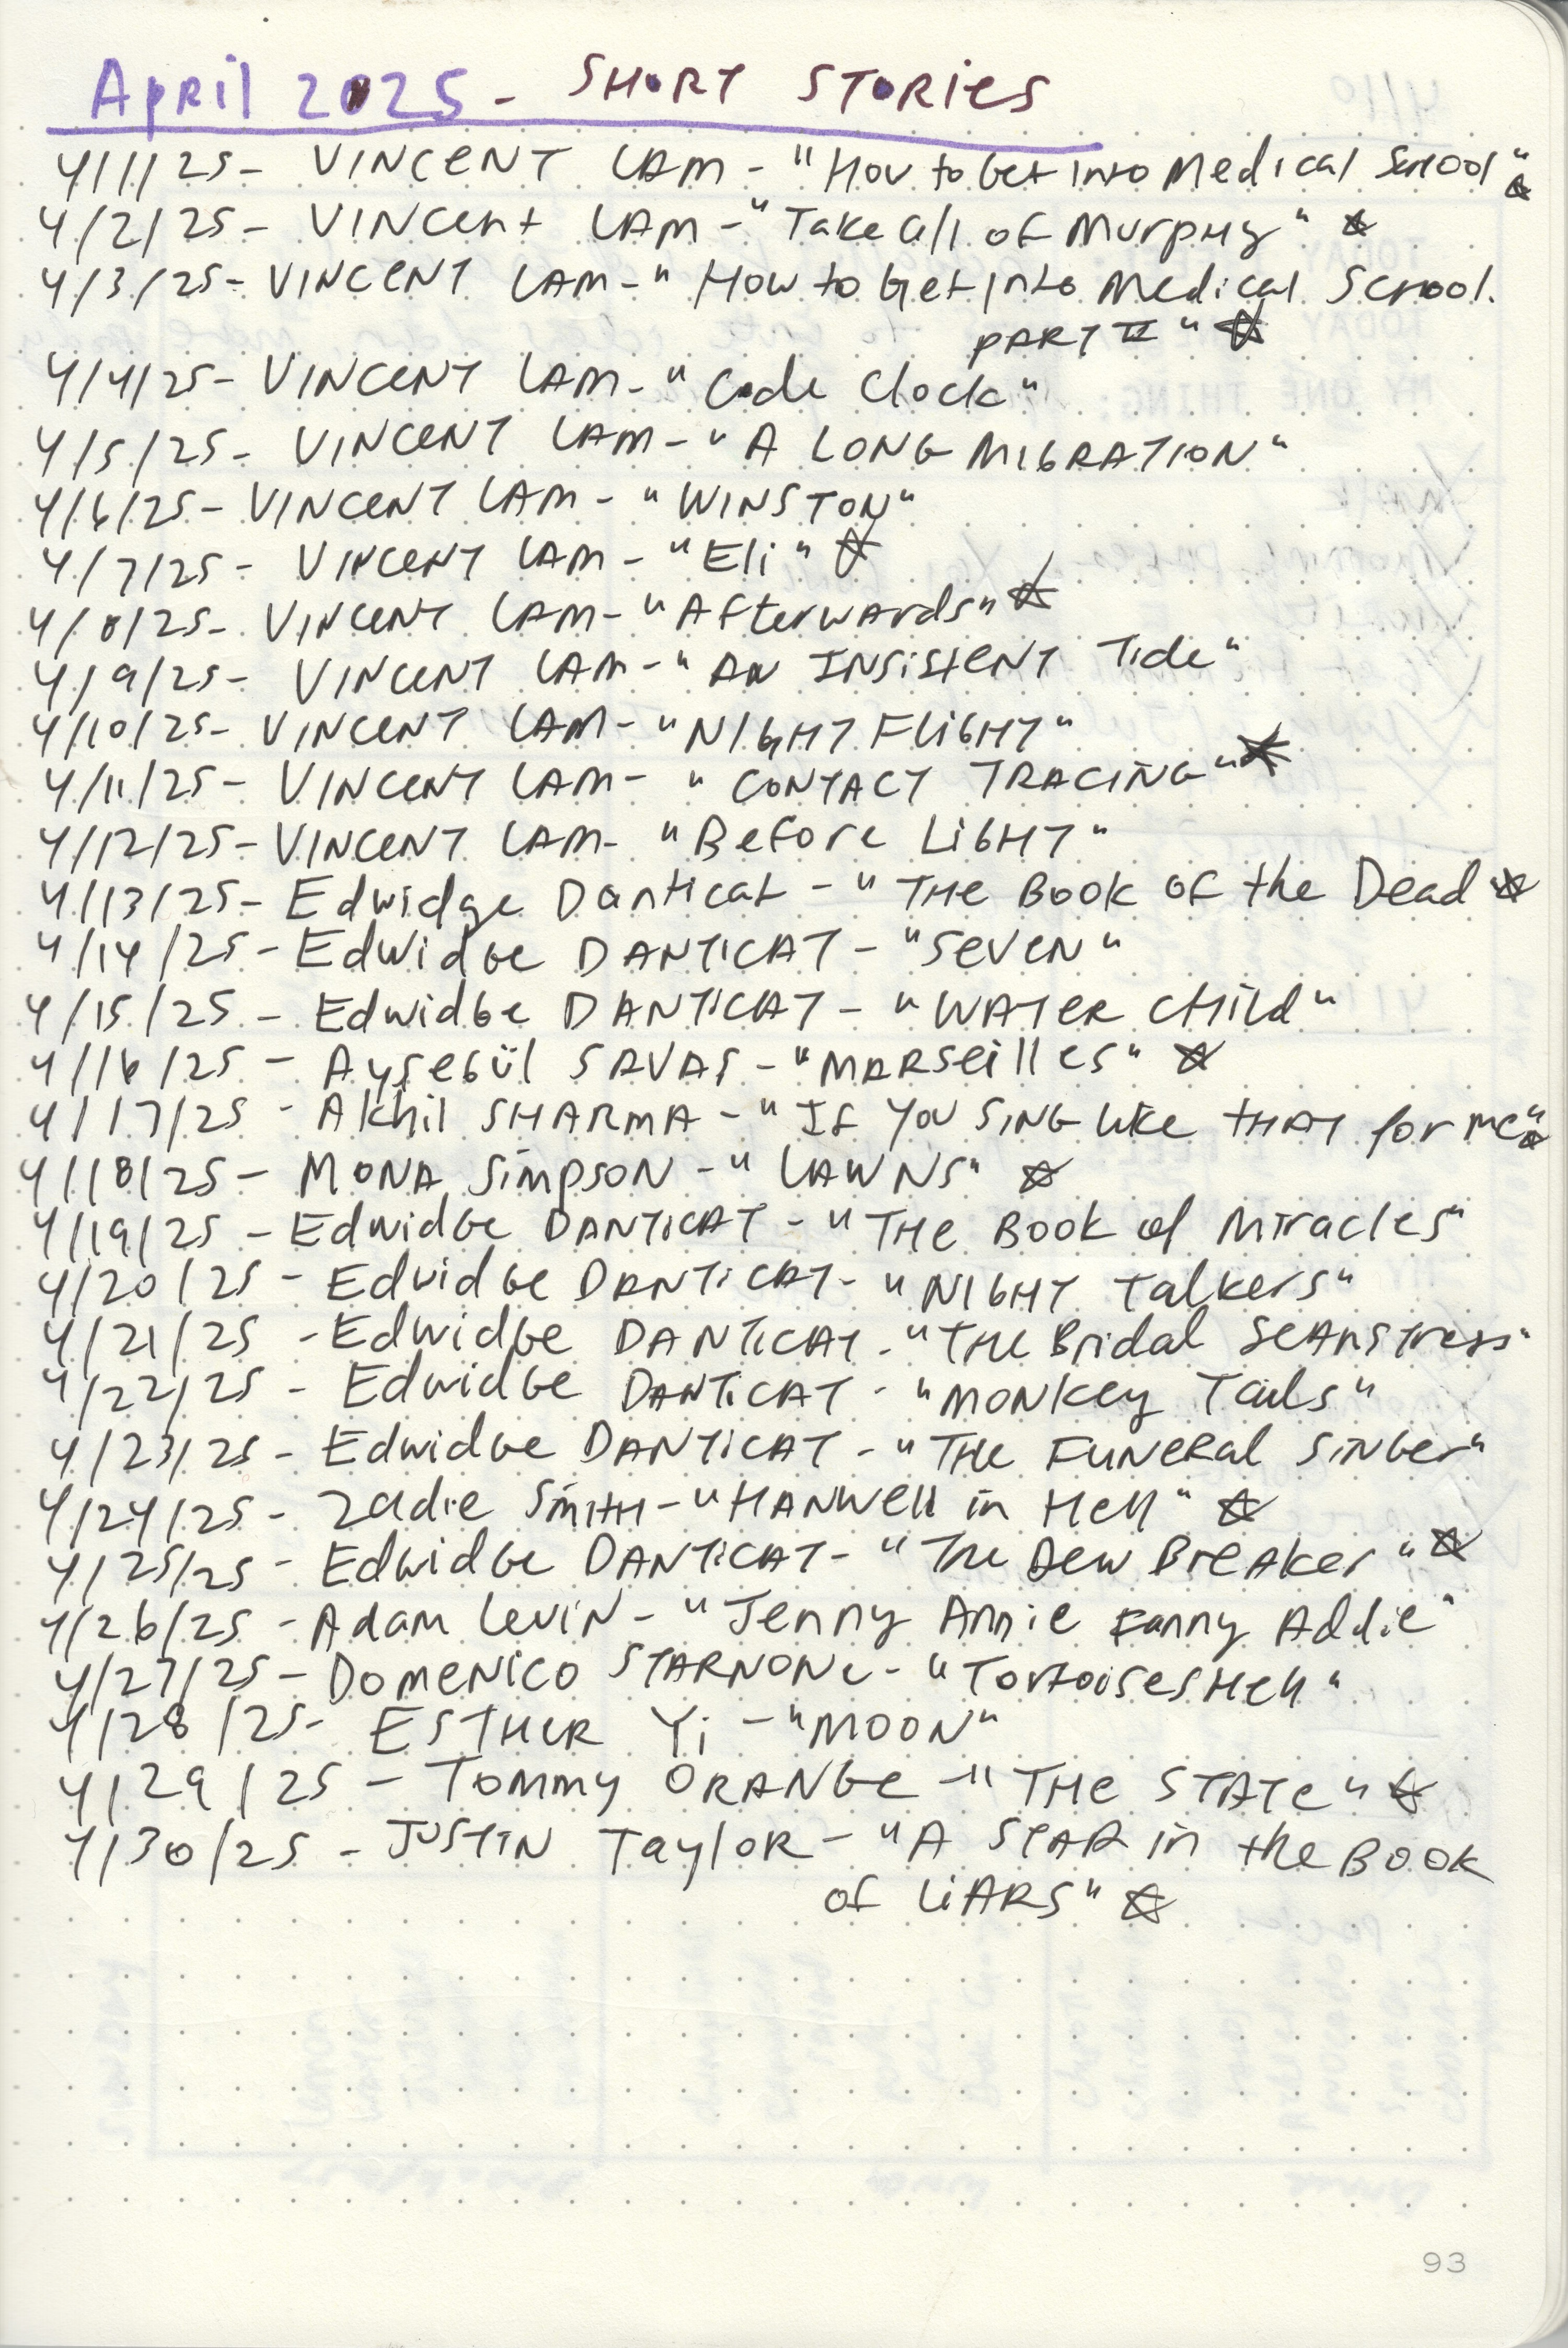 April 2025 - SHORT STORIES
4/1/25 - VINCENT LAM - "How to Get Into Medical School" ☆
4/2/25 - VINCENT LAM - "Take All of Murphy" ☆
4/3/25 - VINCENT LAM - "How to Get Into Medical School.
PART II" ☆
4/4/25 - VINCENT LAM - "Code Clock"
4/5/25 - VINCENT LAM - "A LONG MIGRATION"
4/6/25 - VINCENT LAM - "WINSTON"
4/7/25 - VINCENT LAM - "Eli" ☆
4/8/25 - VINCENT LAM - "Afterwards" ☆
4/9/25 - VINCENT LAM - "AN INSISTENT Tide"
4/10/25 - VINCENT LAM - "NIGHT FLIGHT"
4/11/25 - VINCENT LAM - "CONTACT TRACING" ☆
4/12/25 - VINCENT LAM - "Before LIGHT"
4/13/25 - Edwidge Danticat - "THE BOOK OF the Dead ☆
4/14/25 - Edwidge DANTICAT - "SEVEN"
4/15/25 - Edwidge DANTICAT - "WATER CHILD"
4/16/25 - Ayşegül SAVAŞ - "MARSEILLES" ☆
4/17/25 - Akhil SHARMA - "If YOU SING like THAT for me" ☆
4/18/25 - MONA SIMPSON - "LAWNS" ☆
4/19/25 - Edwidge DANTICAT - "THE BOOK of Miracles"
4/20/25 - Edwidge DANTICAT - "NIGHT Talkers"
4/21/25 - Edwidge DANTICAT - "THE Bridal SEAMSTress"
4/22/25 - Edwidge DANTICAT - "MONKEY Tails"
4/23/25 - Edwidge DANTICAT - "THE FUNERAL SINGER"
4/24/25 - Zadie SMITH - "HANWELL in Hell" ☆
4/25/25 - Edwidge DANTICAT - "The Dew BREAKER" ☆
4/26/25 - Adam LEVIN - "Jenny Annie Fanny Addie"
4/27/25 - DOMENICO STARNONE - "TortoiseSHell"
4/28/25 - ESTHER Yi - "MOON"
4/29/25 - TOMMY ORANGE - "THE STATE" ☆
4/30/25 - JUSTIN TAYLOR - "A STAR in the BOOK
of LIARS" ☆
93